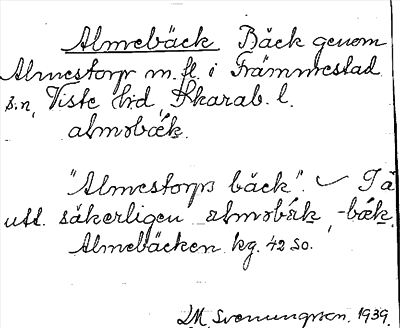 Almebäck Bäck genom
Almestorp m. fl. i Främmestad
s:n, Viste hd, Skarab. l.
almsbæk.
"Almestorps bäck". Få
utt. säkerligen almsbæk, -bæk.
Almebäcken kg. 42 so.
Svenungsson. 1939.